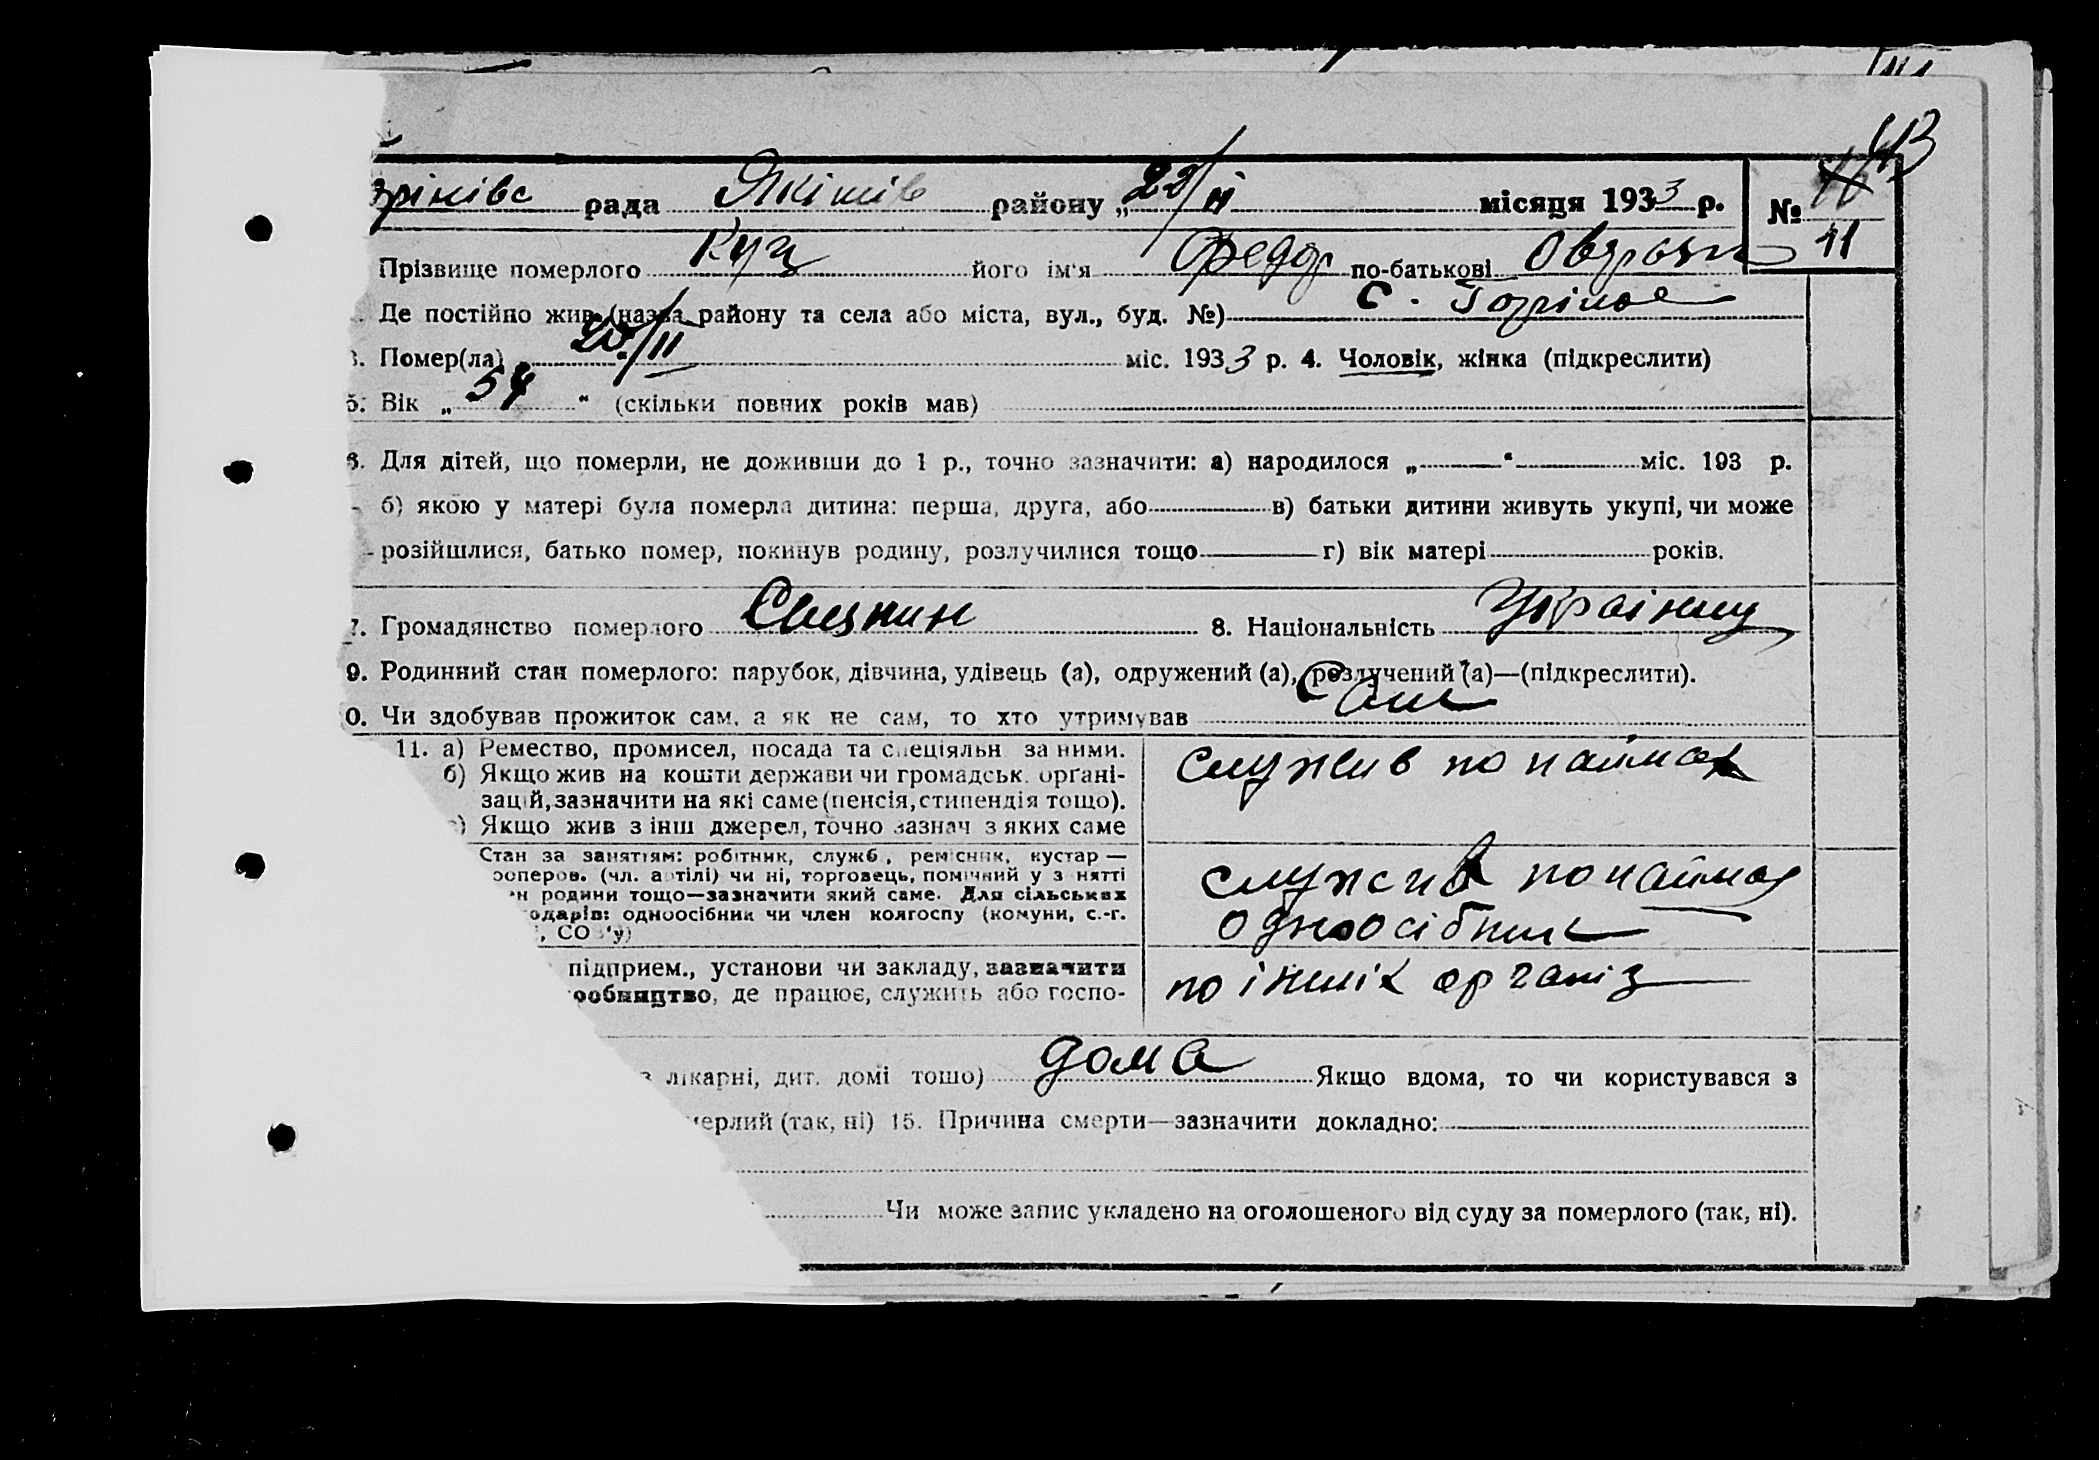 рада Якимів району „22/II місяця 1933 р. №
11
Прізвище померлого Куц його ім'я Федор по-батькові
Де постійно жив (назва району та села або міста, вул., буд. №) с.
3. Помер(ла) /II міс. 1933 р. 4. Чоловік, жінка (підкреслити)
5. Вік „54“ (скільки повних років мав)
6. Для дітей, що померли, не доживши до 1 р., точно зазначити: а) народилося „ “ міс. 193 р.
б) якою у матері була померла дитина: перша, друга, або в) батьки дитини живуть укупі, чи може
розійшлися, батько помер, покинув родину, розлучилися тощо г) вік матері років.
7. Громадянство померлого 8. Національність Українец
9. Родинний стан померлого: парубок, дівчина, удівець (а), одружений (а), розлучений (а)—(підкреслити).
0. Чи здобував прожиток сам, а як не сам, то хто утримував Сам
11. а) Ремество, промисел, посада та спеціяльн за ними. служив по наймах
б) Якщо жив на кошти держави чи громадськ. органі-
зацій, зазначити на які саме (пенсія, стипендія тощо).
) Якщо жив з інш джерел, точно зазнач з яких саме
Стан за заняттям: робітник, служб., ремісник, кустар — служив по наймах
рсперов. (чл. артілі) чи ні, торговець, помічний у з нятті
н родини тощо—зазначити який саме. Для сільських
одарів: одноосібник чи член колгоспу (комуни, с.-г. одноосібник
, СОЗ'у)
підприєм., установи чи закладу, зазначити по інших організ
робництво, де працює, служить або госпо-
з лікарні, дит. домі тощо) дома Якщо вдома, то чи користувався з
мерлий (так, ні) 15. Причина смерти—зазначити докладно:
Чи може запис укладено на оголошеного від суду за померлого (так, ні).